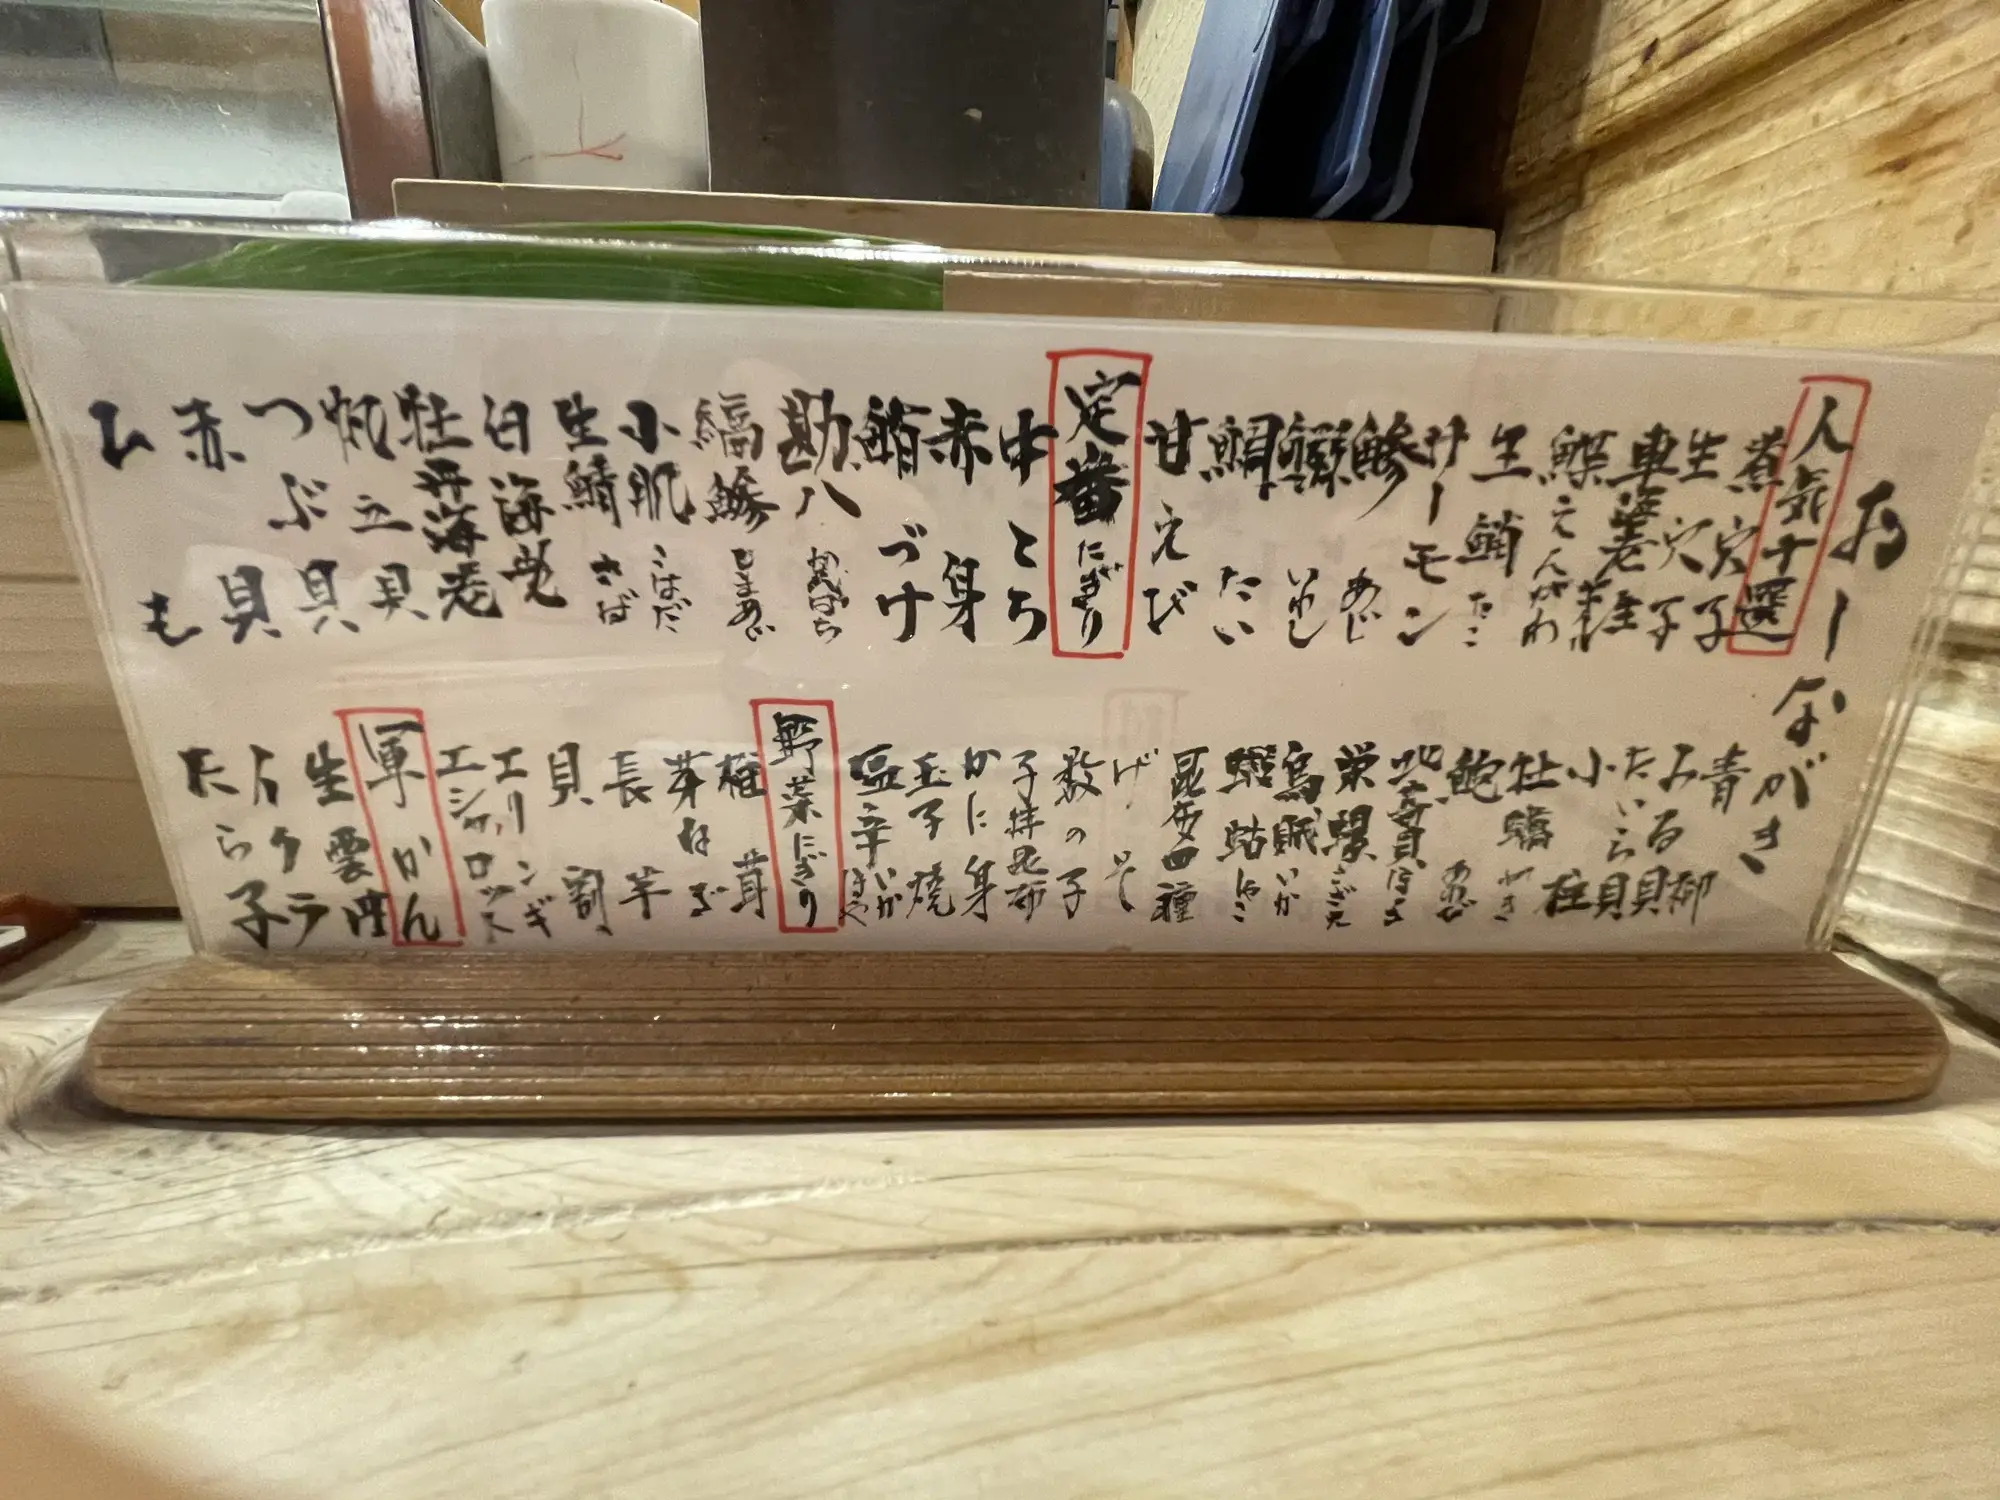 おーながき
人気十選
煮穴子
生穴子
車海老
えんがわ
生鮹 たこ
サーモン
鯵 あじ
鰯 いわし
鯛 たい
甘えび
定番にぎり
中とろ
赤身
鮪づけ
勘八 かんぱち
縞鯵 しまあじ
小肌 こはだ
生鯖 さば
白海老
牡丹海老
帆立貝
つぶ貝
赤貝
ひも
青柳
みる貝
たいら貝
小柱
牡蠣 かき
鮑 あわび
北寄貝 ほっき
栄螺 さざえ
烏賊 いか
蝦蛄 しゃこ
昆布〆四種
げそ
数の子
子持昆布
かに身
玉子焼
塩辛いか
野菜にぎり
椎茸
芽ねぎ
長芋
貝割
エリンギ
エシャロット
軍かん
生雲丹
イクラ
たらら子